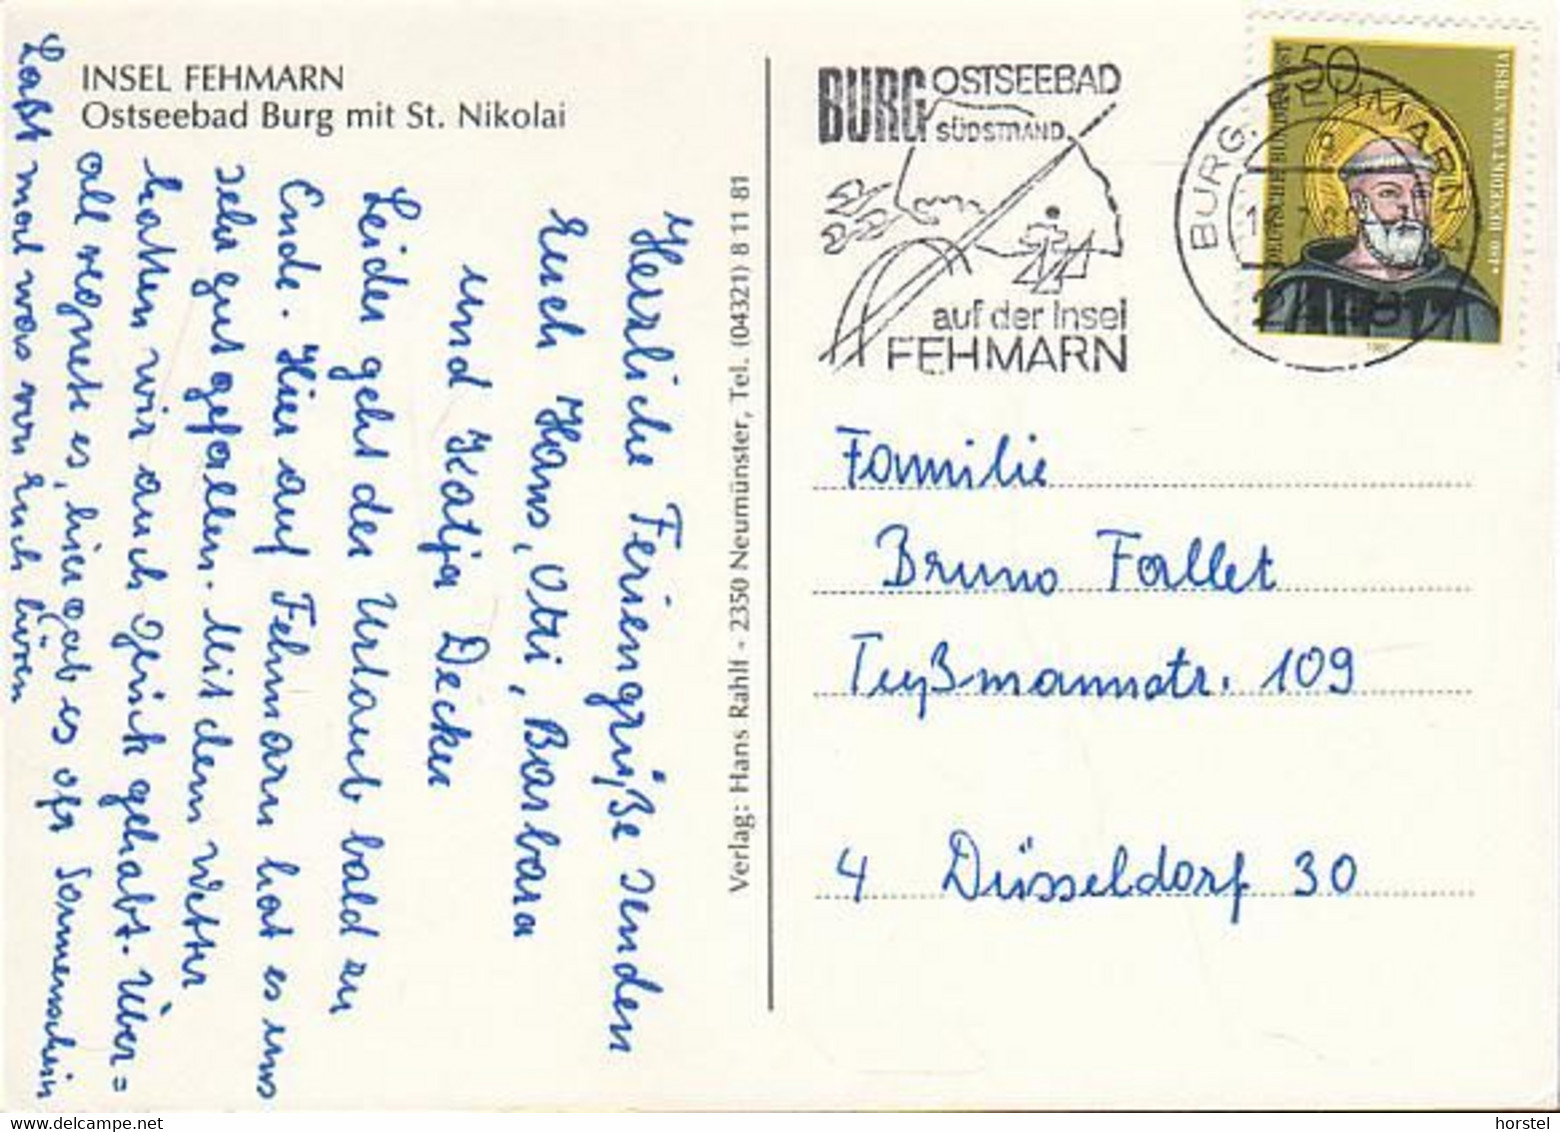 INSEL FEHMARN
Ostseebad Burg mit St. Nikolai
Herzliche Feriengrüße senden
Euch Hans, Otti, Barbara
und Katja Decker
Leider geht der Urlaub bald zu
Ende. Hier auf Fehmarn hat es uns
sehr gut gefallen. Mit dem Wetter
hatten wir auch Glück gehabt. Über=
all regnete es, hier gab es oft Sonnenschein
Laßt mal was von Euch hören
Verlag: Hans Rahlf - 2350 Neumünster, Tel. (04321) 8 11 81
BURG OSTSEEBAD
SÜDSTRAND
auf der Insel
FEHMARN
BURG, FEHMARN
50
DEUTSCHE BUNDESPOST
BENEDIKT VON NURSIA
Familie
Bruno Fallet
Teußmannstr. 109
4 Düsseldorf 30
horstel